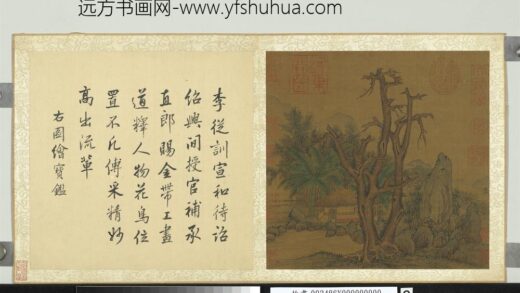 远方书画网-www.yfshuhua.com
李從訓宣和待詔
紹興間授官補承
直郎賜金帶工畫
道釋人物花鳥位
置不凡傅采精妙
高出流軰
右圖繪寶鑑